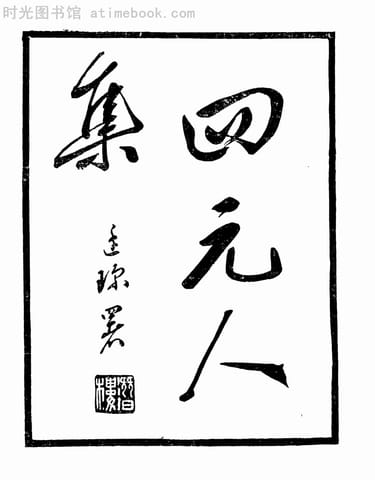 时光图书馆 atimebook.com
四元人
集
珎署